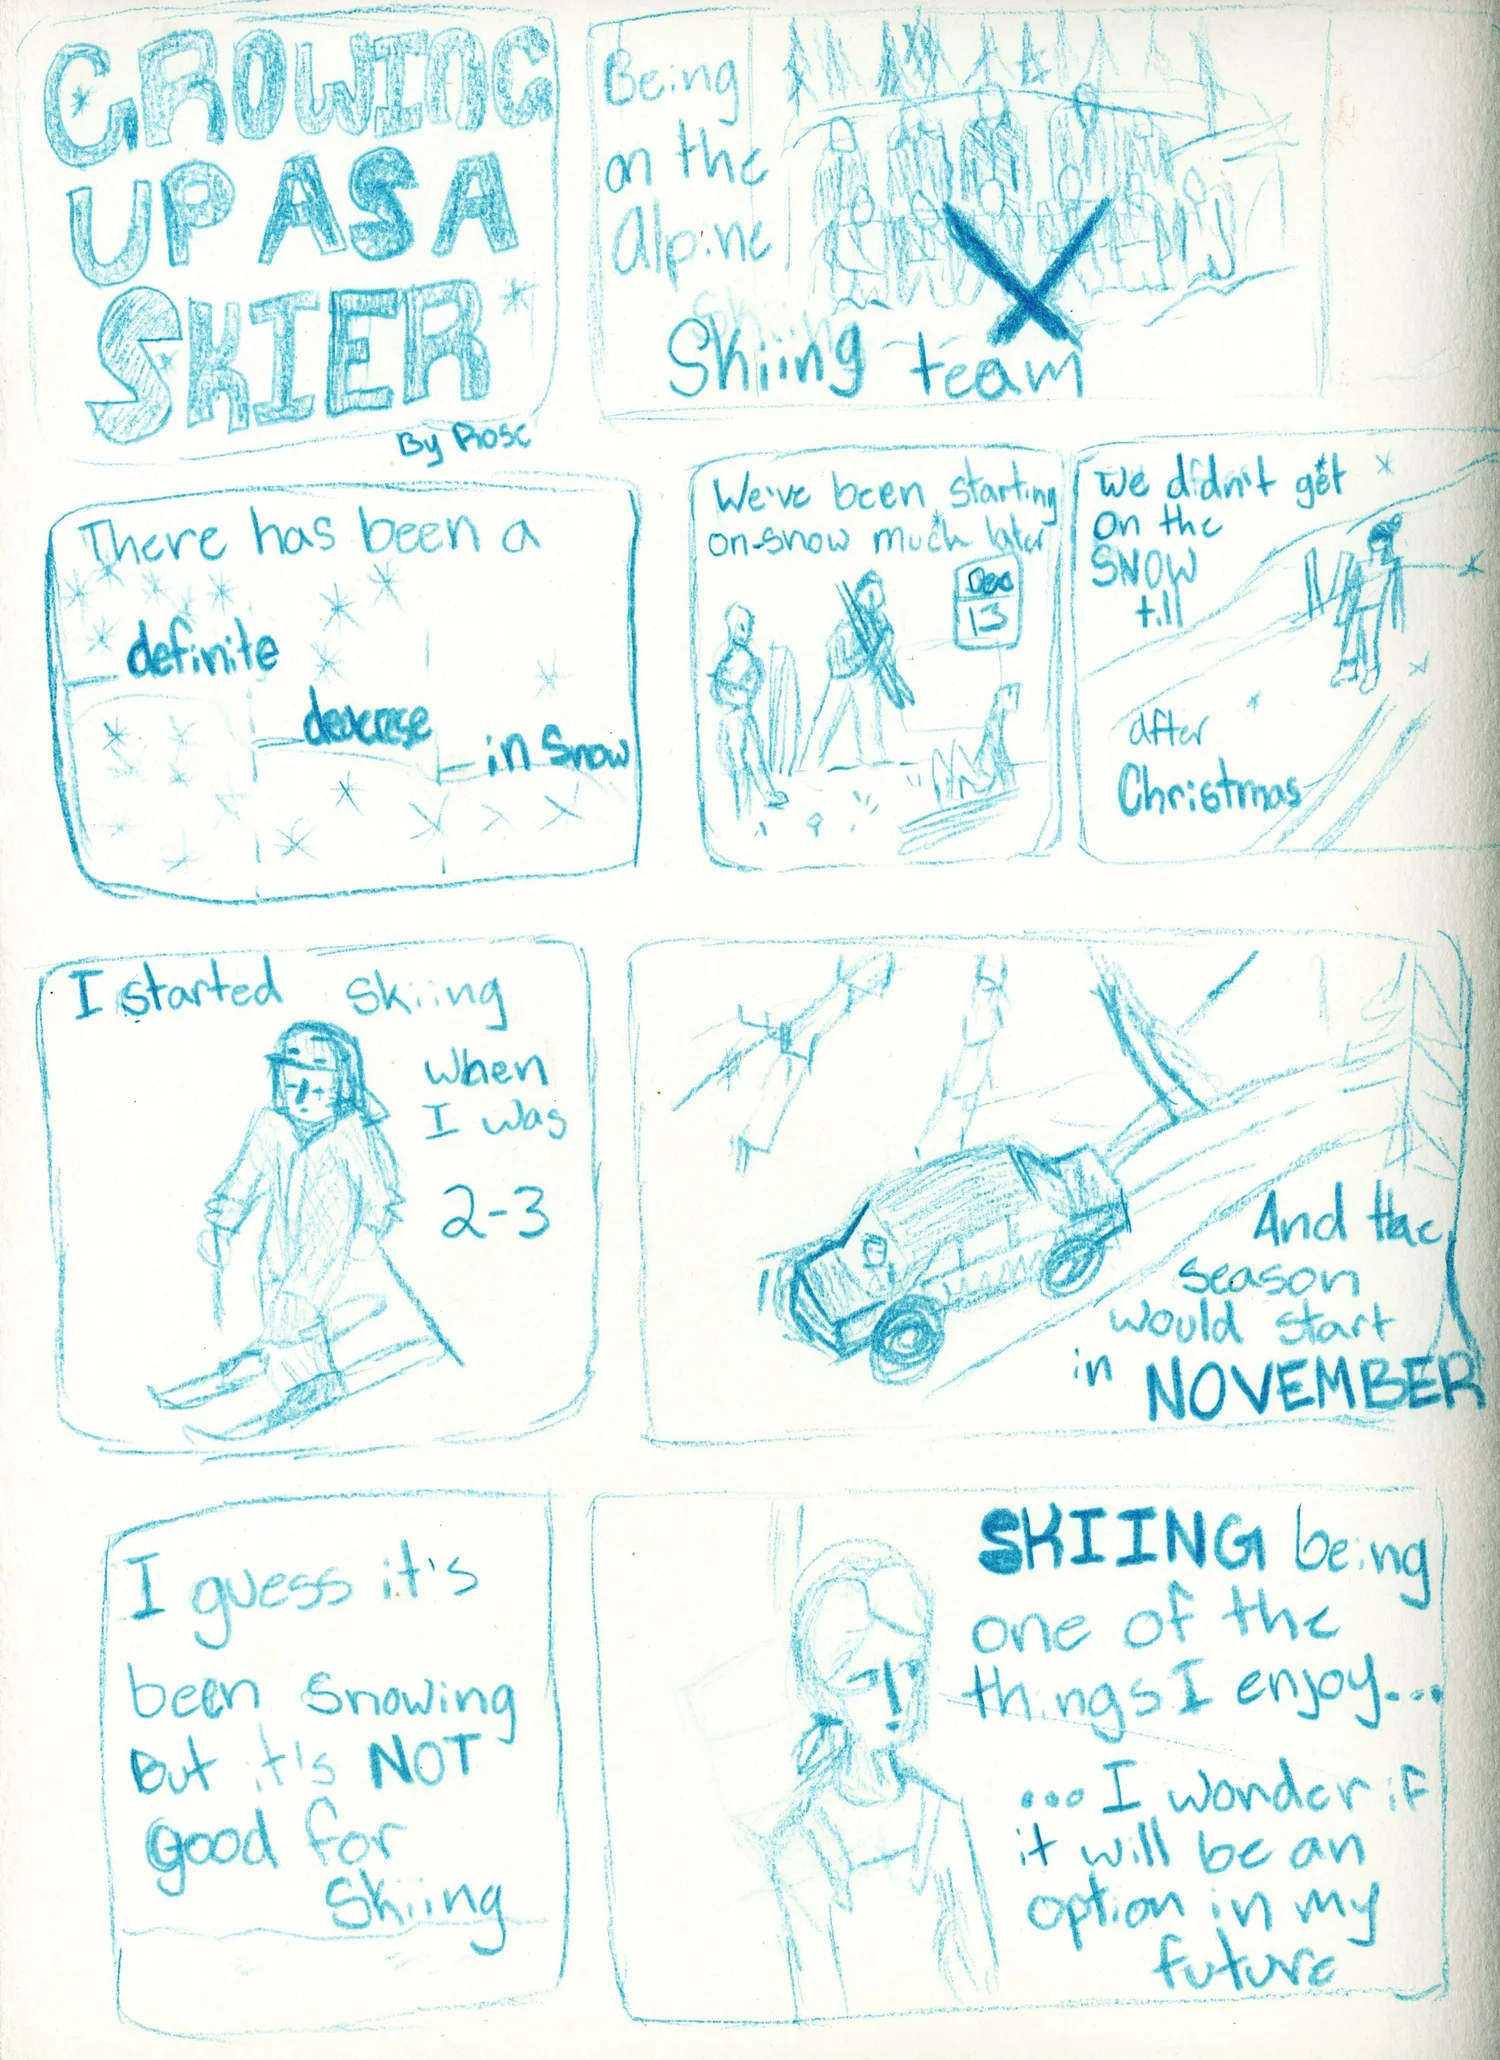 GROWING
UP AS A
SKIER
By Rose
Being
on the
Alpine
Skiing team
There has been a
definite
decrease
in Snow
We've been starting
on-snow much later
Dec
13
We didn't get
on the
SNOW
till
after
Christmas
I started skiing
when
I was
2-3
And the
season
would start
in NOVEMBER
I guess it's
been snowing
But it's NOT
good for
skiing
SKIING being
one of the
things I enjoy...
...I wonder if
it will be an
option in my
future